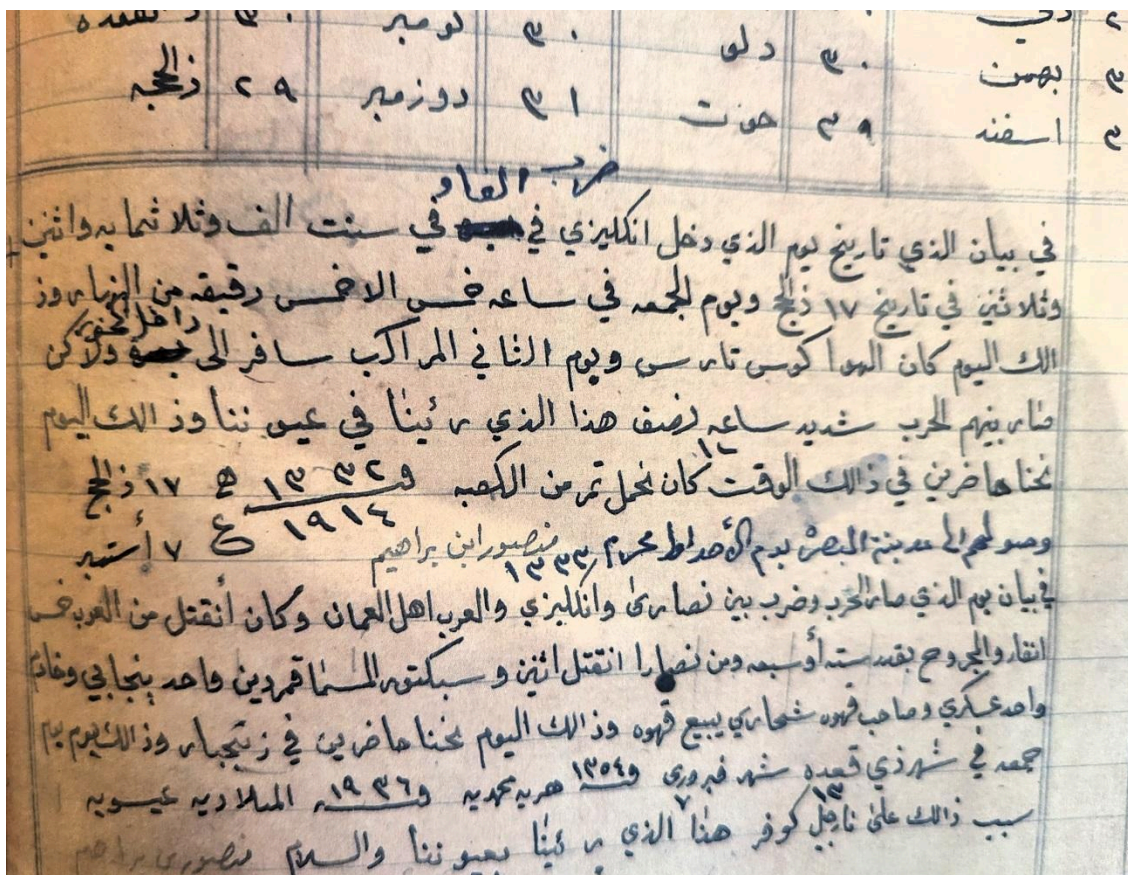 ٢ دي ٣٠ نومبر ٣٠ ذالقعده
٣ بهمن ٣٠ دلو ٣١ دوزمبر ٢٩ ذلحجه
٣ اسفند ٢٩ حوت
ضرب الفاو
في بيان الذي تاريخ يوم الذي دخل انكليزي في في سنت الف وثلاثمايه واثنين
وثلاثين في تاريخ ١٧ ذلحج ويوم الجمعه في ساعه خمس الاخمس دقيقه من النهار وذ
الك اليوم كان الهوا كوس تارس ويوم الثاني المراكب سافر الى داخل ولاكن
صار بينهم الحرب شديد ساعه نصف هذا الذي رئينا في عيو ننا وذ الك اليوم
نحنا حاضرين في ذالك الوقت كان نحمل تمر من الكعبه ١٣٣٢ ه ١٧ ذلحج
١٢
١٩١٤ ع ٧ أ
الى مدينة البصرة يوم الأحد محرم ١٣٣٣ منصور ابن براهيم
في بيان يوم الذي صار الحرب وضرب بين نصارى وانكليزي والعرب اهل العمان وكان أنقتل من العرب خمس
انفار والمجروح بقدر سته أوسبعه ومن نصارا انقتل اثنين و سبكتور المسما قمردين واحد بنجابي وخادم
واحد عسكري وصاحب قهوه شحاري يبيع قهوه وذالك اليوم نحنا حاضرين في زنجبار وذالك يوم يوم
جمعه في شهر ذي قعده شهر فبروري ١٣٥٤ هربه محمديه ١٩٣٦ الميلاديه عيسويه
١٣ ٧
سبب ذالك على نارجيل كوفر هذا الذي رئينا بعيو ننا والسلام منصور براهيم